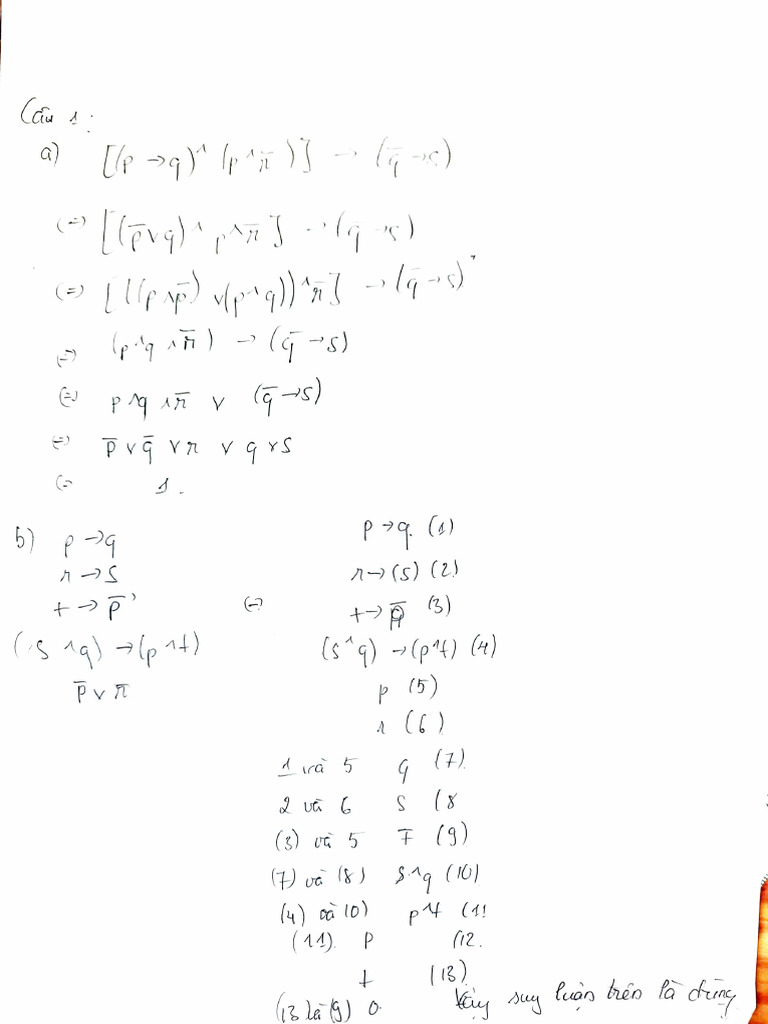 Câu 1:
a) [(p → q) ∧ (p ∧ r̄)] → (q̄ → s)
(=) [(p̄ ∨ q) ∧ p ∧ r̄] → (q̄ → s)
(=) [((p ∧ p̄) ∨ (p ∧ q)) ∧ r̄] → (q̄ → s)
(=) (p ∧ q ∧ r̄) → (q̄ → s)
(=) p ∧ q ∧ r̄ ∨ (q̄ → s)
(=) p̄ ∨ q̄ ∨ r ∨ q ∨ s
(= 1.
b) p → q p → q. (1)
r → s r → (s) (2)
t → p̄ (=) t → p̄ (3)
(s ∧ q) → (p ∧ t) (s ∧ q) → (p ∧ t) (4)
p̄ ∨ r̄ p (5)
r (6)
1 và 5 q (7)
2 và 6 s (8
(3) và 5 t̄ (9)
(7) và (8) s ∧ q (10)
(4) và 10) p ∧ t (11
(11) p (12.
t (13)
(13 là (9) 0. Vậy suy luận trên là đúng